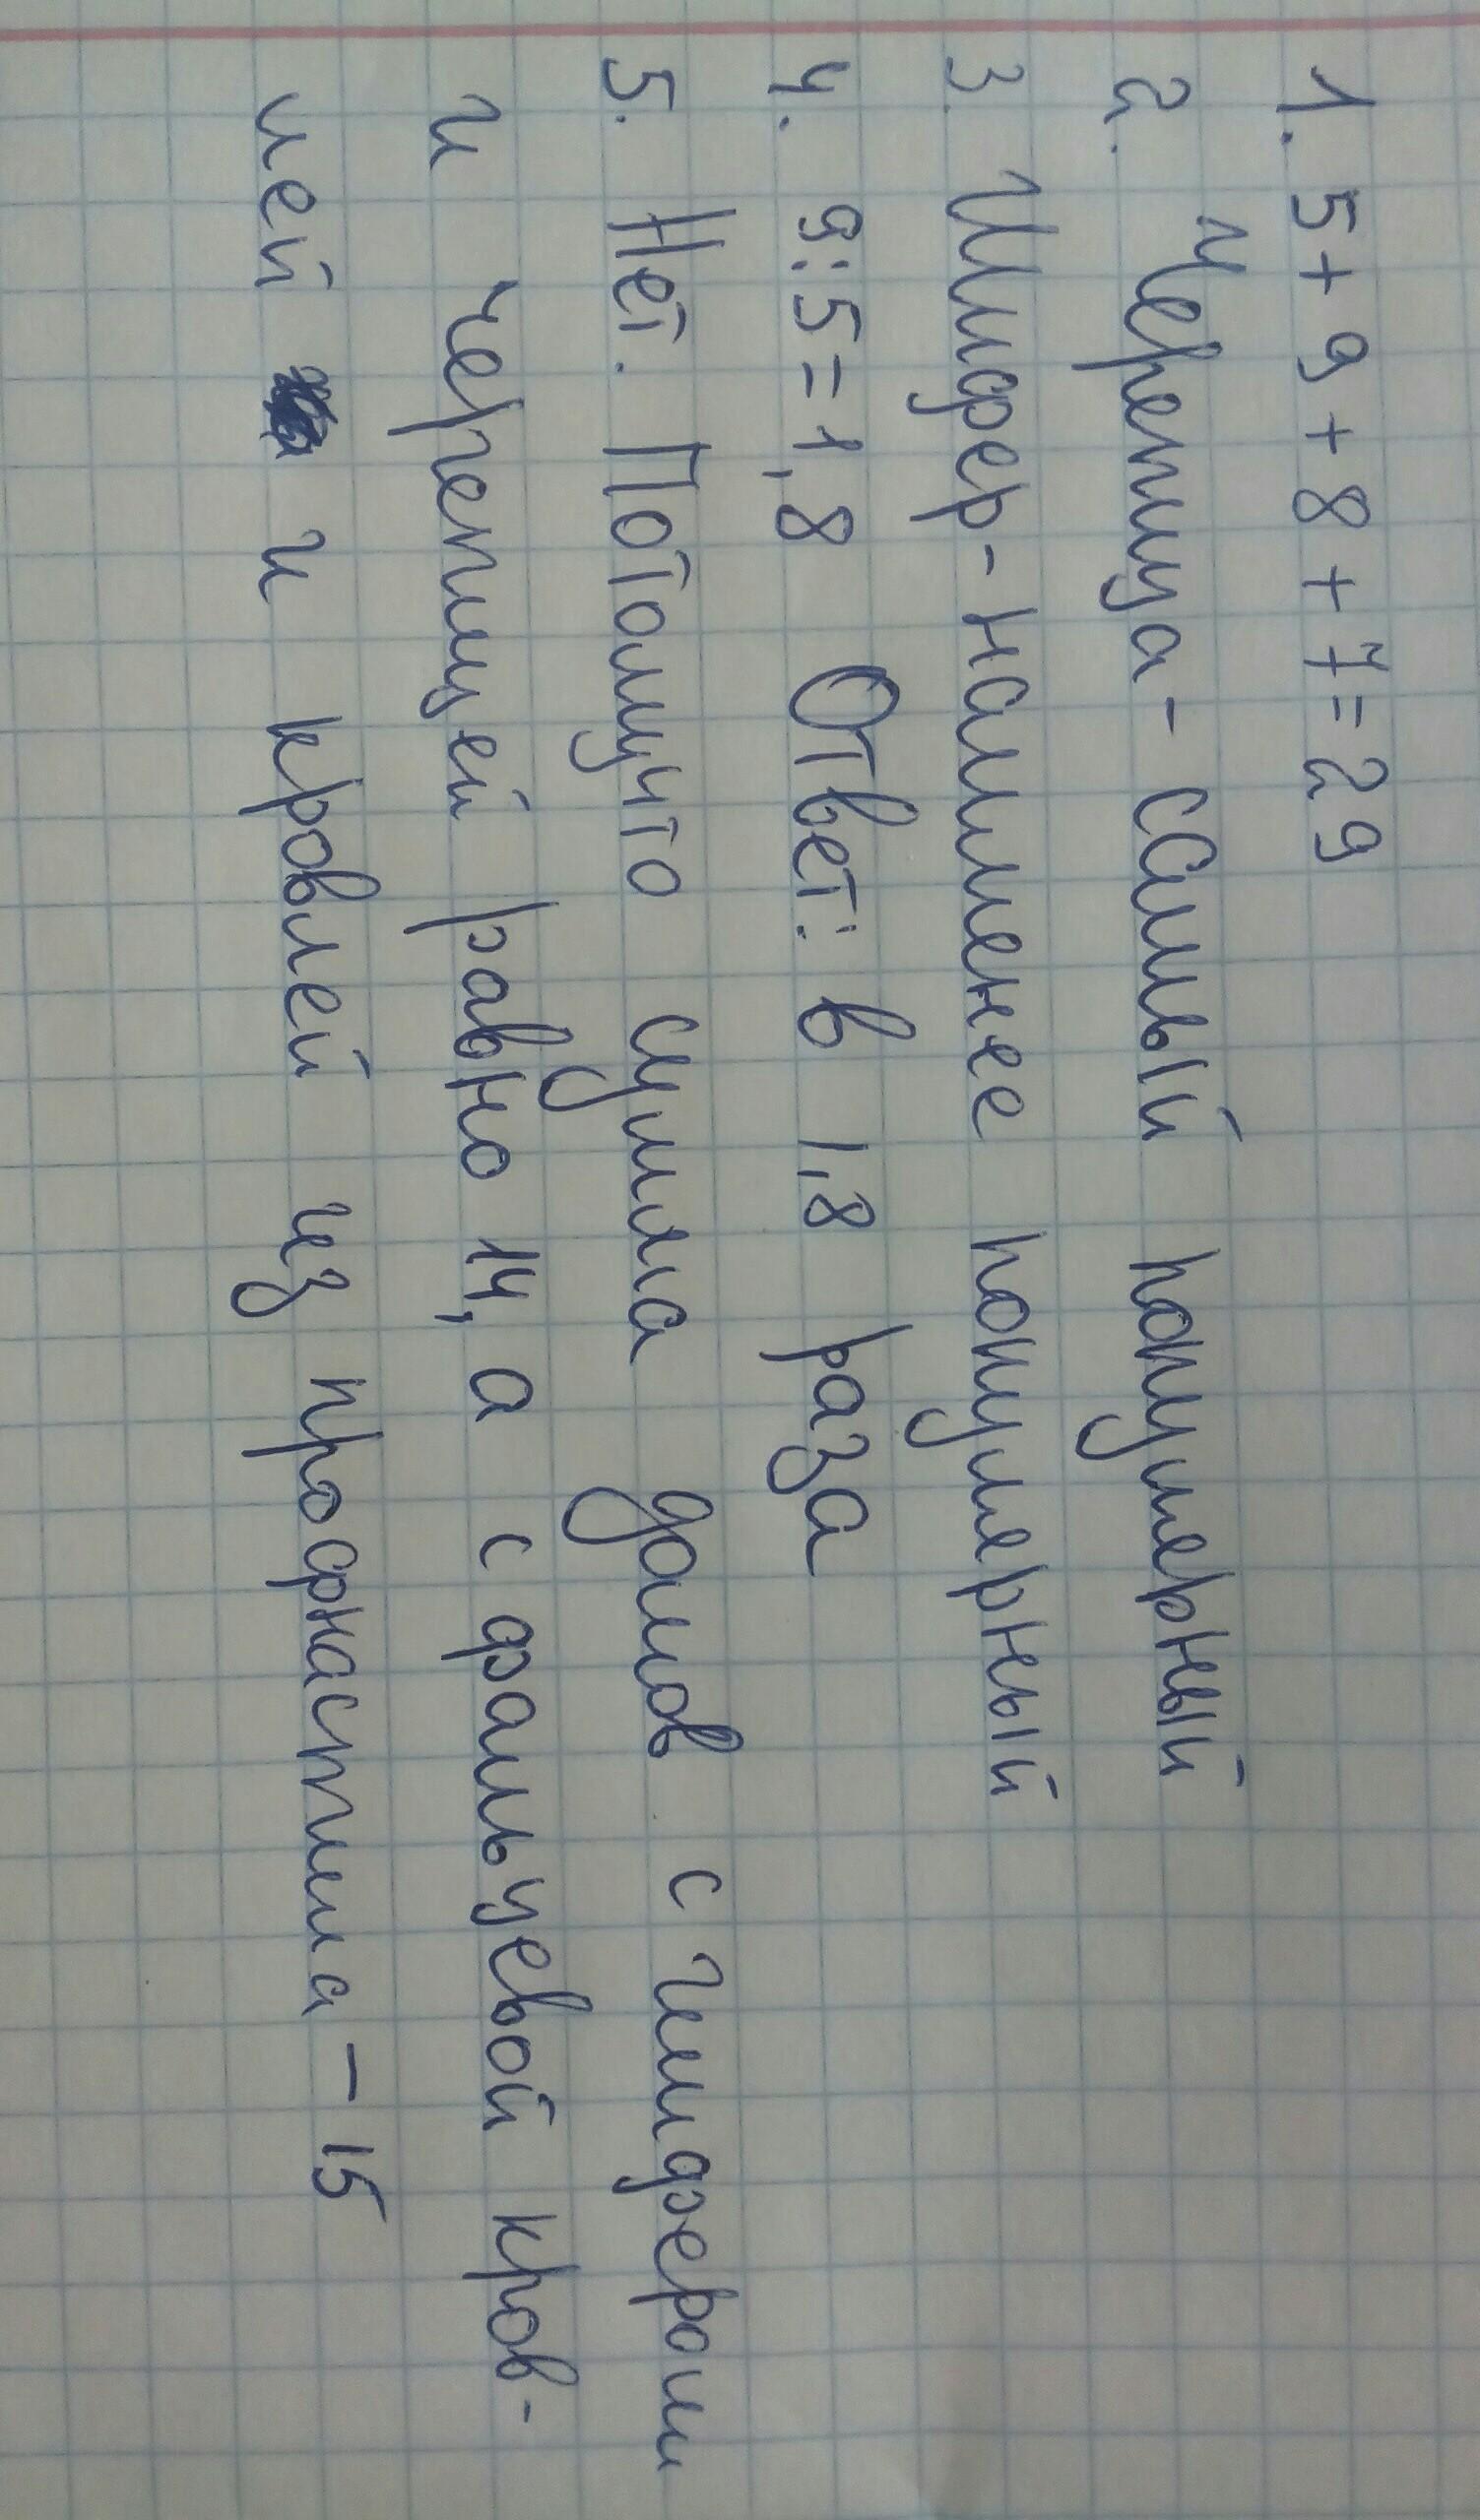 1. 5+9+8+7=29
2. Черепица - самый популярный
3. Шифер - наименее популярный
4. 9:5=1,8 Ответ: в 1,8 раза
5. Нет. Потомучто сумма домов с шифером
и черепицей равно 14, а с фальцевой кров-
лей и кровлей из профнастила - 15